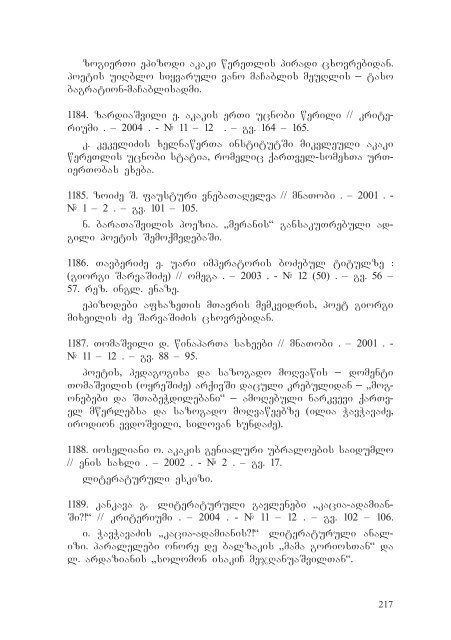 ზოგიერთი ეპიზოდი აკაკი წერეთლის პირადი ცხოვრებიდან.
პოეტის უიღბლო სიყვარული ვანო მაჩაბლის მეუღლის – ტასო
ბაგრატიონ-მაჩაბლისადმი.
1184. ზარდიაშვილი ე. აკაკის ერთი უცნობი წერილი // კრიტე-
რიუმი . – 2004 . - № 11 – 12 . – გვ. 164 – 165.
კ. კეკელიძის ხელნაწერთა ინსტიტუტში მიკვლეული აკაკი
წერეთლის უცნობი სტატია, რომელიც ქართველ-სომეხთა ურთ-
იერთობას ეხება.
1185. ზოიძე შ. ფაუსტური ვნებათაღელვა // მნათობი . – 2001 . -
№ 1 – 2 . – გვ. 101 – 105.
ნ. ბარათაშვილის პოეზია. „მერანის“ განსაკუთრებული ად-
გილი პოეტის შემოქმედებაში.
1186. თავბერიძე ე. უარი იმპერატორის ბოძებულ ტიტულზე :
(გიორგი შარვაშიძე) // ომეგა . – 2003 . - № 12 (50) . – გვ. 56 –
57. რეზ. ინგლ. ენაზე.
ეპიზოდები აფხაზეთის მთავრის მემკვიდრის, პოეტ გიორგი
მიხეილის ძე შარვაშიძის ცხოვრებიდან.
1187. თომაშვილი დ. წინაპართა სახეები // მნათობი . – 2001 . -
№ 11 – 12 . – გვ. 88 – 95.
პოეტის, პედაგოგისა და საზოგადო მოღვაწის – დომენტი
თომაშვილის (ოყრეშიძე) არქივში დაცული კრებულიდან – „მოგ-
ონებები და შთაბეჭდილებანი“ – ამოღებული ნარკვევი ქართვ-
ელ მწერლებსა და საზოგადო მოღვაწეებზე (ილია ჭავჭავაძე,
იროდიონ ევდოშვილი, სილოვან ხუნდაძე).
1188. იოსელიანი ო. აკაკის გენიალური უბრალოების საიდუმლო
// ენის სახლი . – 2002 . - № 2 . – გვ. 17.
ლიტერატურული ესკიზი.
1189. კანკავა გ. ლიტერატურული გავლენები „კაცია-ადამიან-
ში?!“ // კრიტერიუმი . – 2004 . - № 11 – 12 . – გვ. 102 – 106.
ი. ჭავჭავაძის „კაცია-ადამიანის?!“ ლიტერატურული ანალ-
იზი. პარალელები ონორე დე ბალზაკის „მამა გორიოსთან“ და
ლ. არდაზიანის „სოლომონ ისაკიჩ მეჯღანუაშვილთან“.
217